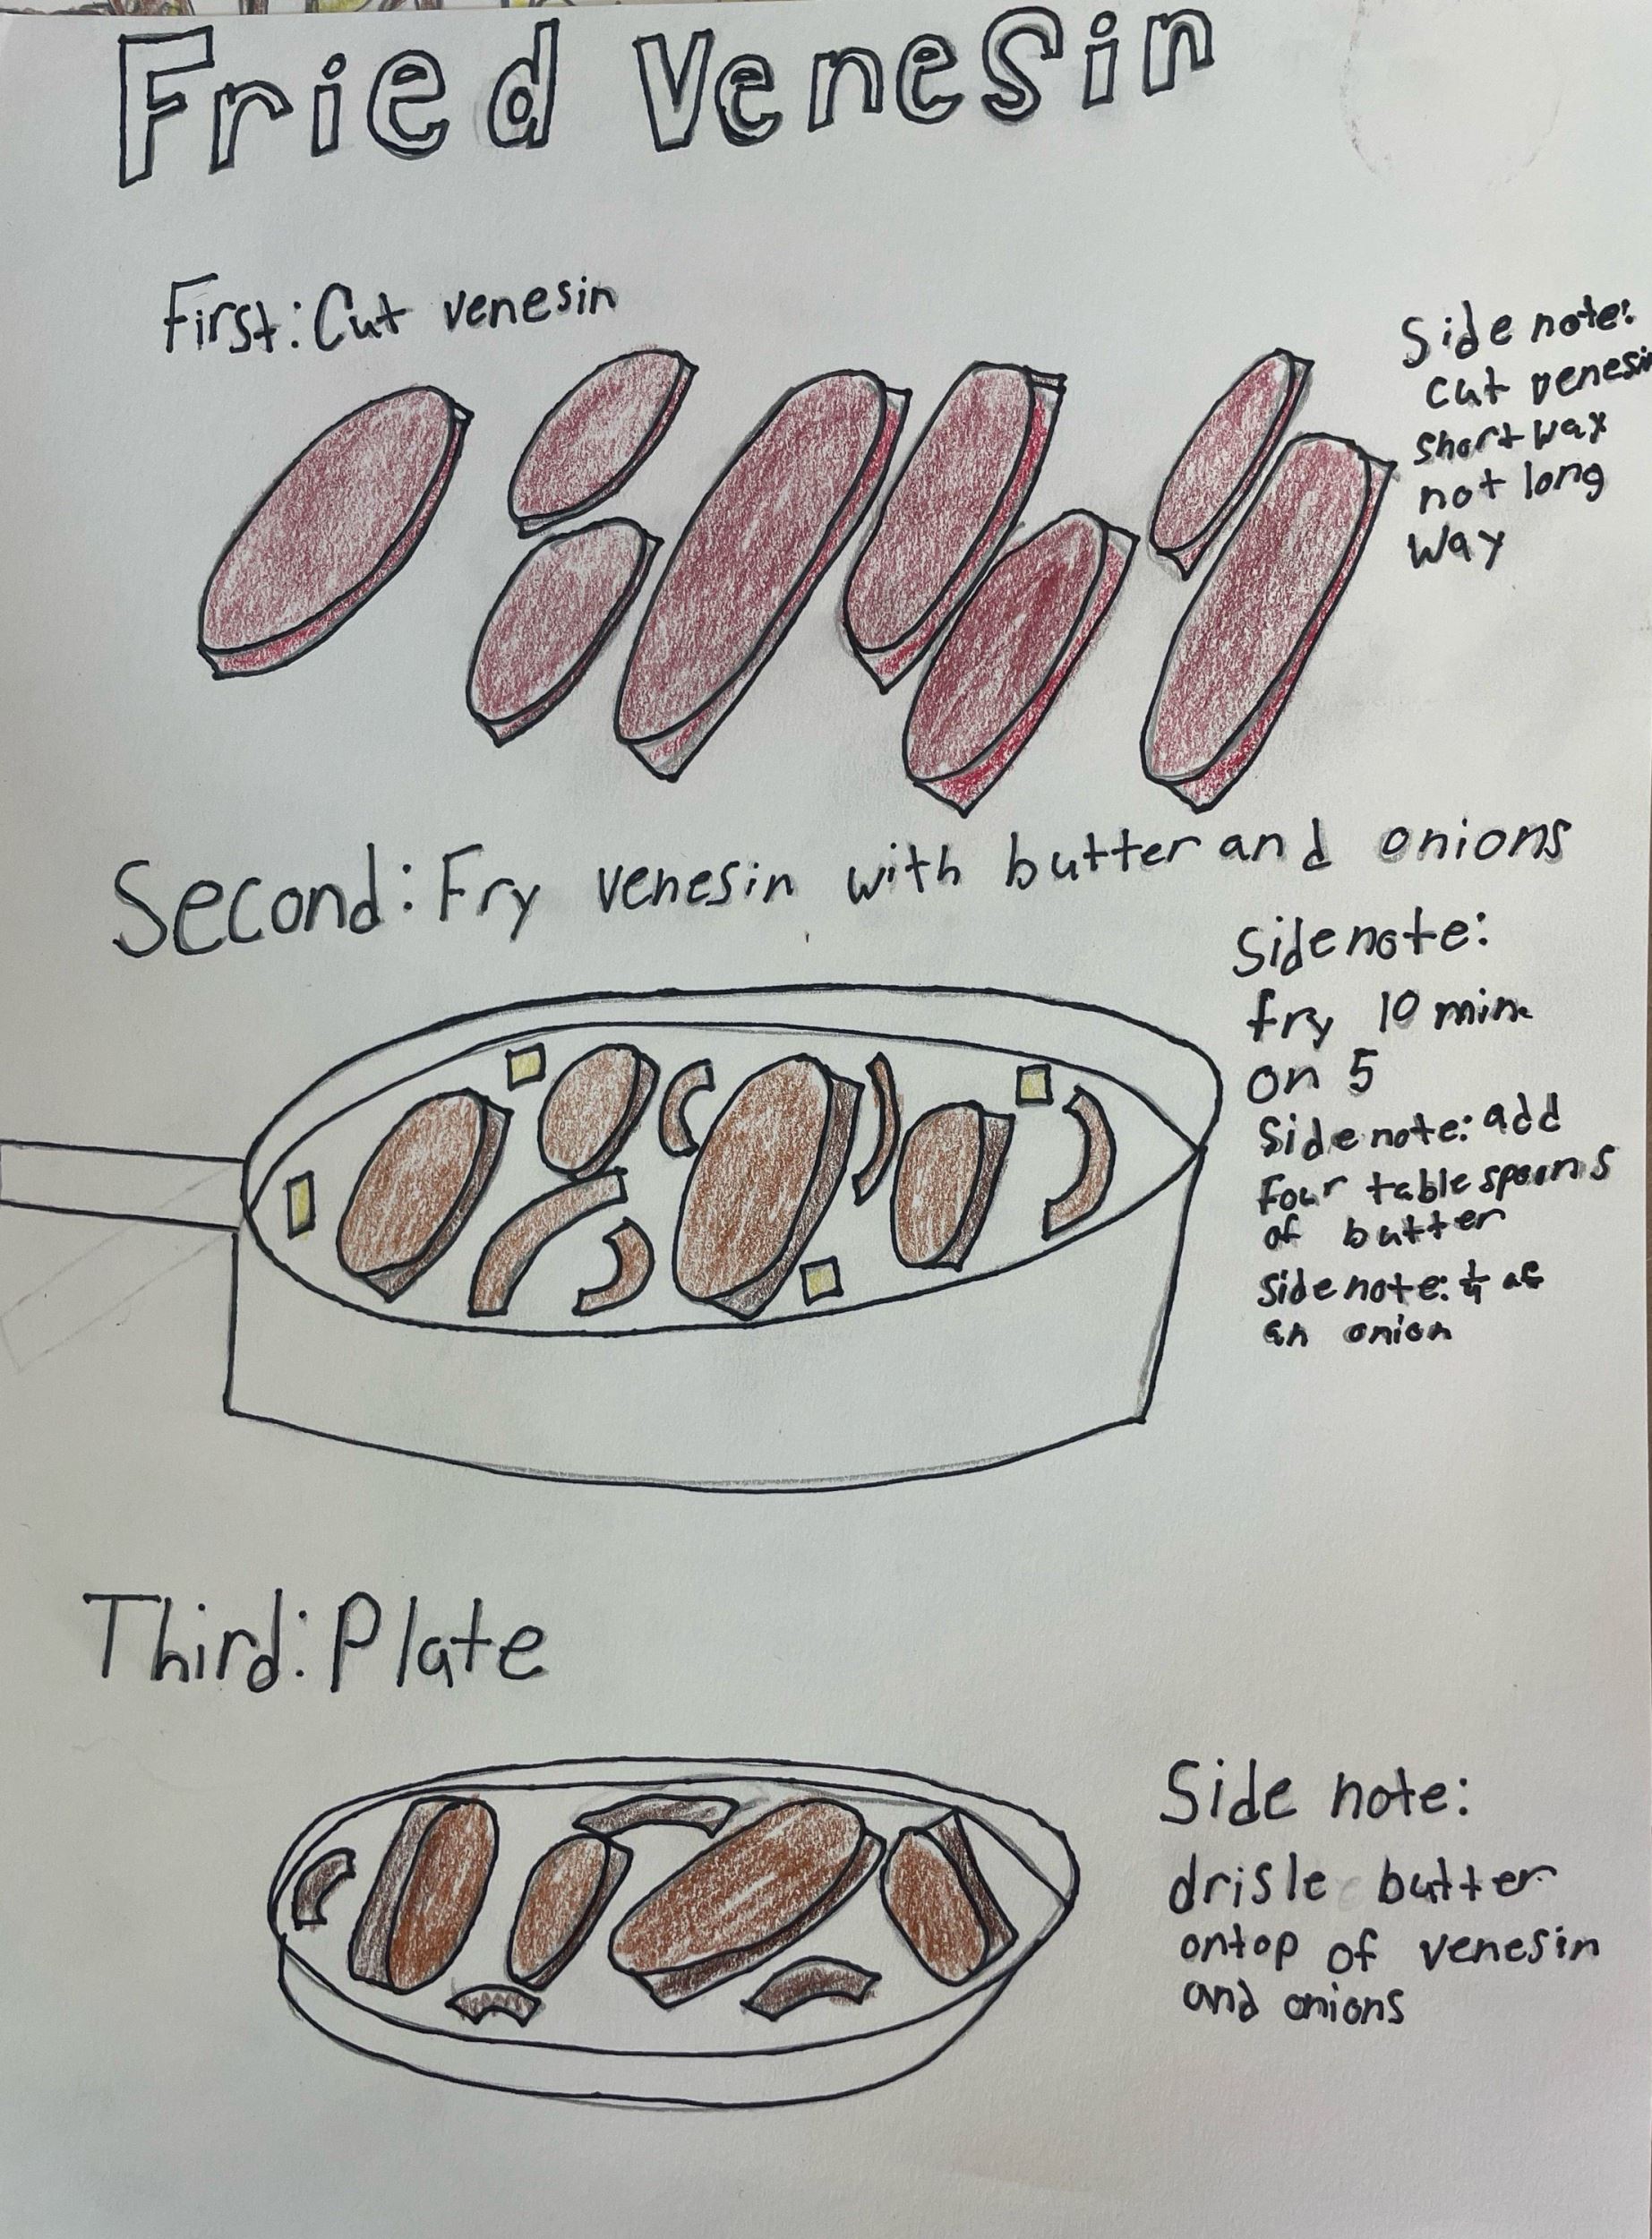 Fried Venesin
First: Cut venesin
Side note:
cut venesin
short way
not long
way
Second: Fry venesin with butter and onions
Side note:
fry 10 min
on 5
Side note: add
four tablespoons
of butter
Side note: 1/4 of
an onion
Third: Plate
Side note:
drisle butter
ontop of venesin
and onions